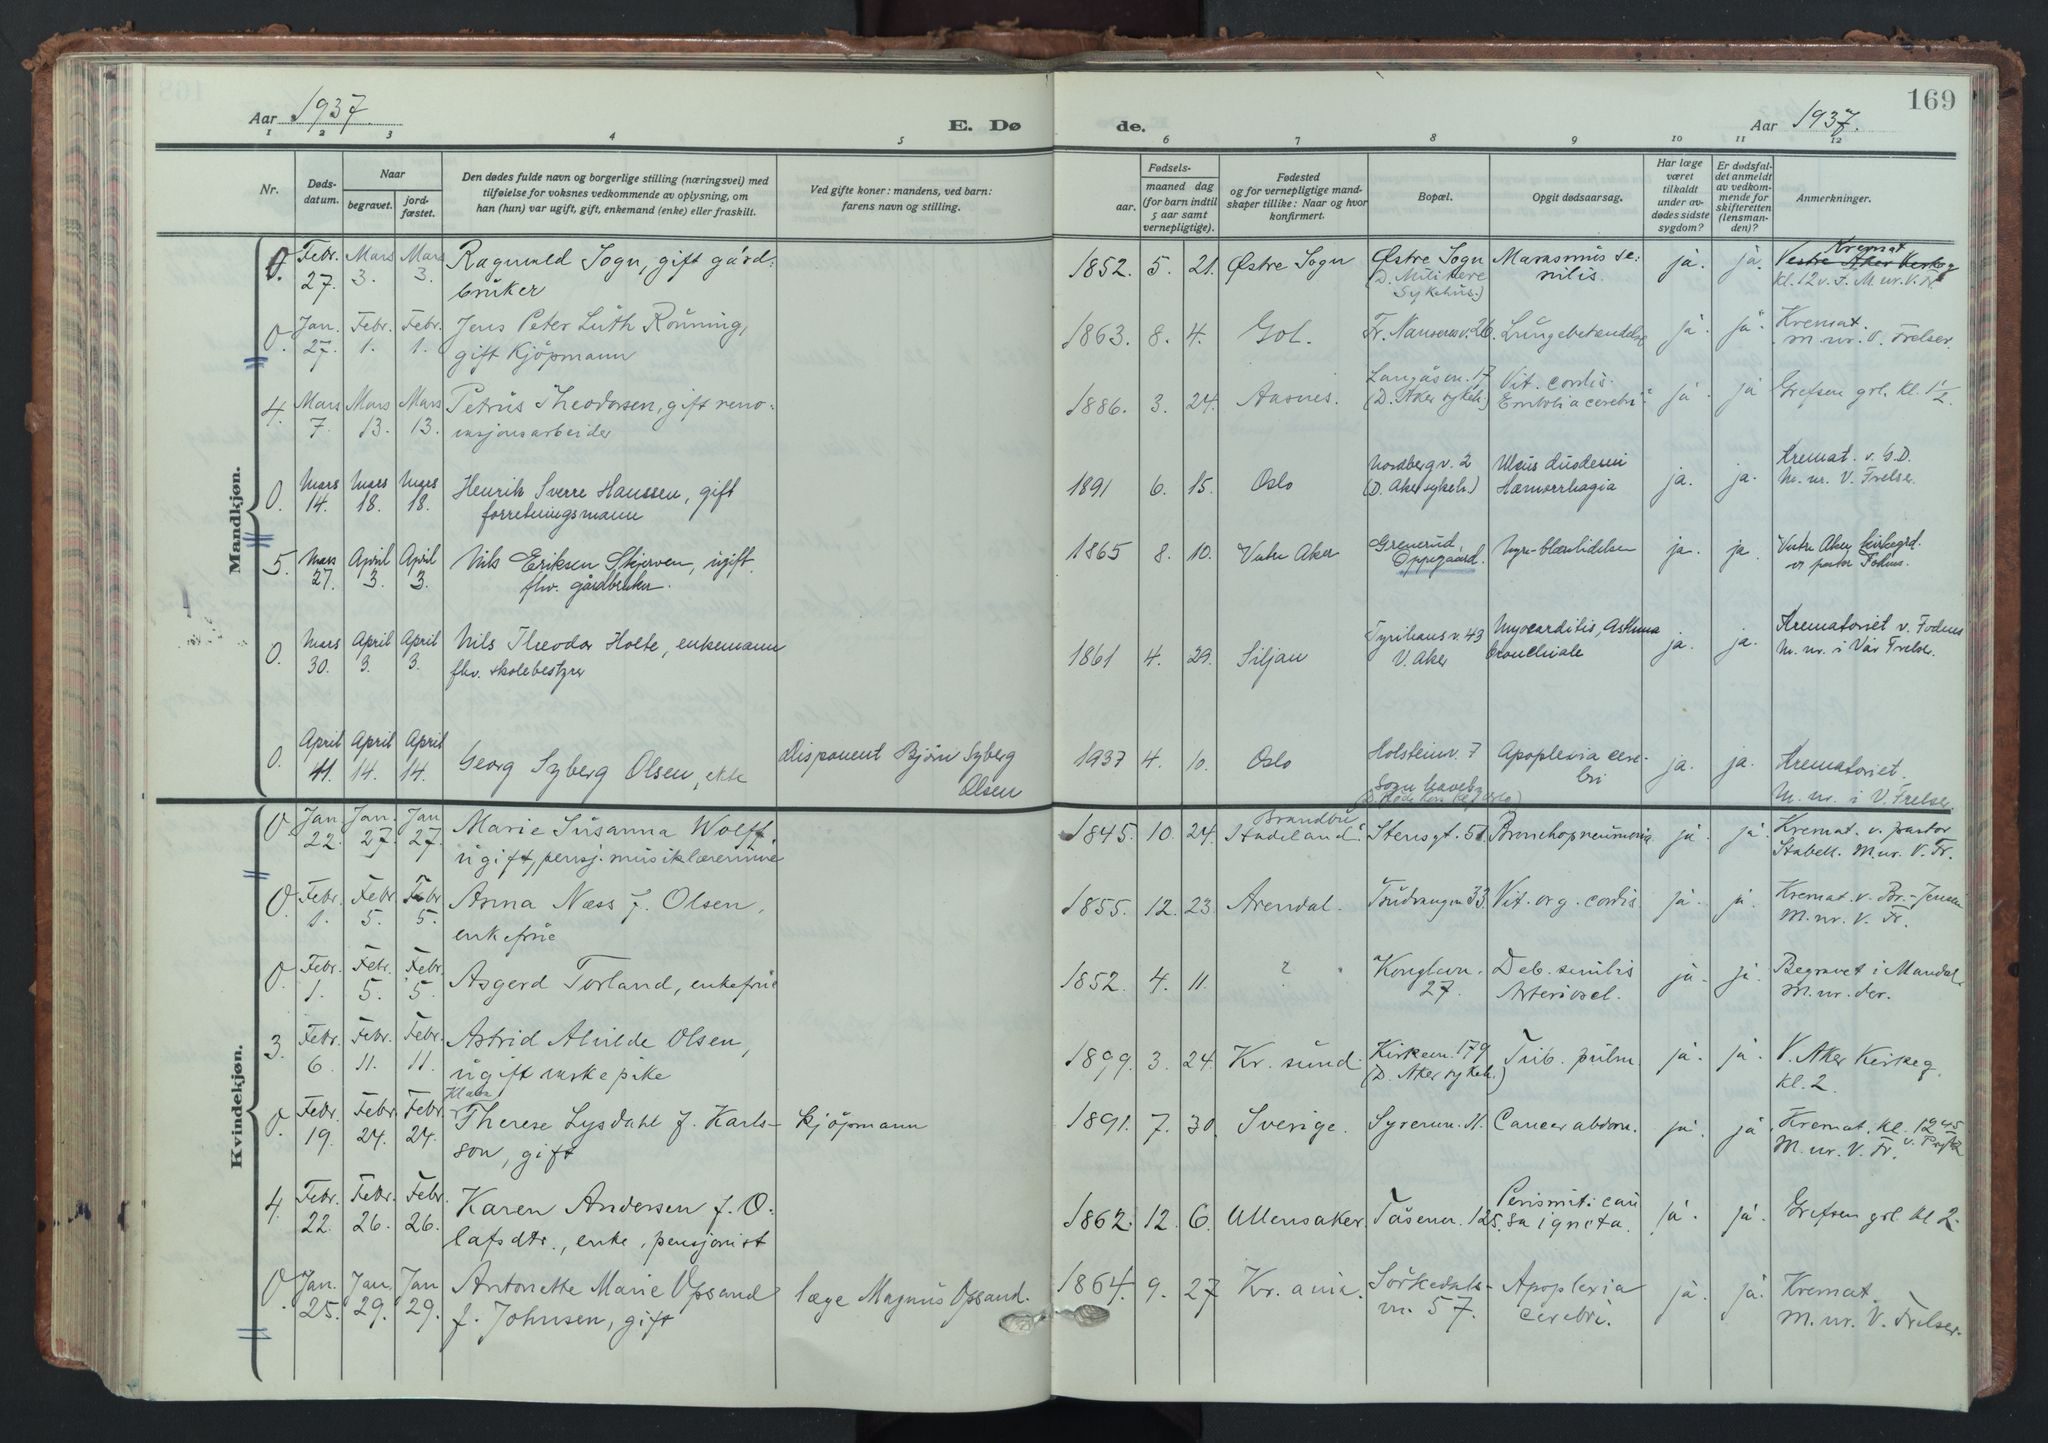 Aar 1937.
E. Dø
de.
Aar 1937.
169
1 2 3 4 5 6 7 8 9 10 11 12
Nr.
Døds-
datum.
Naar
begravet.
jord-
fæstet.
Den dødes fulde navn og borgerlige stilling (næringsvei) med
tilføielse for voksnes vedkommende av oplysning, om
han (hun) var ugift, gift, enkemand (enke) eller fraskilt.
Ved gifte koner: mandens, ved barn:
farens navn og stilling.
Fødsels-
aar.
maaned dag
(for barn indtil
5 aar samt
vernepligtige).
Fødested
og for vernepligtige mand-
skaper tillike: Naar og hvor
konfirmert.
Bopæl.
Opgit dødsaarsag.
Har læge
været
tilkaldt
under av-
dødes sidste
sygdom?
Er dødsfal-
det anmeldt
av vedkom-
mende for
skifteretten
(lensman-
den)?
Anmerkninger.
Mandkjøn.
0. Febr. 27. Mars 3. Mars 3. Ragnvald Sogn, gift gård-
brüker
1852. 5. 21. Østre Sogn Østre Sogn (D. Militære Sykehüs.) Marasmüs se-
nilis. ja. ja. Vestre Aker Kirkeg Kremat
kl. 12 v. F. M. nr. V. Fr.
0. Jan. 27. Febr. 1. Febr. 1. Jens Peter Lüth Rönning,
gift Kjöpmann
1863. 8. 4. Gol. Fr. Nansensv. 26. Lüngebetændelse ja. ja. Kremat.
M. nr. V. Frelser.
4. Mars 7. Mars 13. Mars 13. Petrüs Theodorsen, gift reno-
vasjonsarbeider
1886. 3. 24. Aasnes. Langåsvn. 17 (D. Aker sykeh.) Vit. cordis.
Embolia cerebri ja ja Grefsen grl. kl. 1½
0. Mars 14. Mars 18. Mars 18. Henrik Sverre Hanssen, gift
forretningsmann
1891 6. 15. Oslo Nordbergv. 2 (D. Aker sykeh.) Ulcus duodeni
Hæmorrhagia ja. ja. Kremat. v. G.D.
M. nr. V. Frelser.
5. Mars 27. April 3. April 3. Nils Eriksen Skjerven, ugift.
fhv. gårdbruker.
1865 8. 10. Vestre Aker Grenerud Oppegaard. Nyre-blærelidelsen ja. ja. Vestre Aker kirkegrd.
v. pastor Fodnes.
0. Mars 30. April 3. April 3. Nils Theodor Holte, enkemann
fhv. skolebestyrer
1861 4. 29. Siljan Tyrihansv. 43
V. Aker Myocarditis, Asthma
bronchiale ja. ja. Krematoriet v. Fodnes
M. nr. i Vår Frelser.
0. April 11. April 14. April 14. Georg Syberg Olsen, ekte Disponent Bjørn Syberg
Olsen
1937 4. 10. Oslo Holsteinv. 7
Sogn haveb. Apoplexia cere-
bri ja. ja. Krematoriet.
M. nr. i V. Frelser.
Kvindekjøn.
0 Jan 22. Jan. 27. Jan 27. Marie Süsanna Wolff,
ügift, pensj. müsiklærerinne
1845. 10. 24. Brandbu
Hadeland. Stensgt. 51 Bronchopneumonia ja. ja. Kremat. v. pastor
Stabell. M. nr. V. Fr.
0. Febr. 1. Febr 5. Febr 5. Anna Næss f. Olsen,
enkefrüe
1855. 12. 23. Arendal. Tüdvangvn 33. Vit. org. cordis. ja. ja. Kremat. v. Br.-Jensen
M. nr. V. Fr.
0. Febr. 1. Febr. 5. Febr. 5. Asgerd Torland, enkefrüe
1852. 4. 11. ? Konglevn.
27. Deb. senilis
Arteriosel. ja. ja. Begravet i Mandal.
M. nr. der.
3. Febr. 6. Febr. 11. Febr. 11. Astrid Alvilde Olsen,
ügift væskepike
1899. 3. 24. Kr. sünd. Kirkevn. 179
(D. Aker sykeh.) Tüb. pülm. ja. ja. V. Aker Kirkeg.
kl. 2.
0. Febr. 19. Febr. 24. Febr. 24. Klara
Therese Lysdahl f. Karls-
son, gift kjöpmann
1891. 7. 30. Sverige. Syrenvn. 11. Cancer abdom. ja. ja. Kremat. kl. 12 45
M. nr. V. Fr.
4. Febr. 22. Febr. 26. Febr. 26. Karen Andersen f. O-
lafsdtr., enke, pensjonist
1862. 12. 6. Ullensaker. Tåsenvn. 125. ja. ja. Grefsen grl. kl 2.
0. Jan. 25. Jan. 29. Jan 29. Antonette Marie Opsand
f. Johnsen, gift læge Magnüs Opsand.
1864. 9. 27 Kr. ania. Sörkedals-
vn. 57. Apoplexia
cerebri. ja. ja. Kremat.
M. nr. V. Frelser.